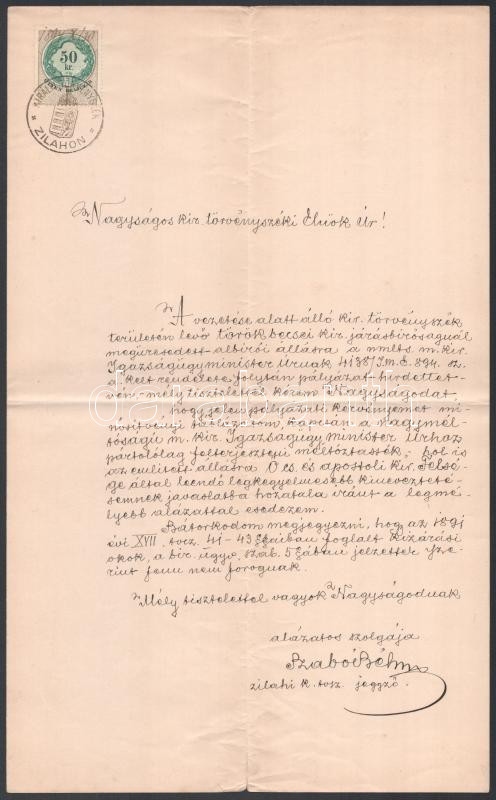 50
kr.
ZILAHON
Nagyságos kir. törvényszéki Elnök Úr!
A vezetése alatt álló kir. törvényszék
területén levő török becsei kir. járásbiróságnál
megüresedett albirói állásra a nmlts. m. kir.
Igazságügyminister Úrnak 4138/I.m.E.894. sz.
a. kelt rendelete folytán pályázat hirdettet-
vén, mély tisztelettel kérem Nagyságodat
hogy jelen pályázati kérvényemet mi-
nősitvényi táblázatom, kapcsán a nagymél-
tóságú m. kir. Igazságügy minister Úrhoz
pártolólag felterjeszteni méltóztassék, hol is
az emlitett állásra Ő cs. és apostoli kir. Felsé-
ge által leendő legkegyelmesebb kinevezteté-
semnek javaslatba hozatala iránt a legmé-
lyebb alázattal esedezem.
Bátorkodom megjegyezni, hogy az 1891
évi XVII. tvcz. 41-43 §§aiban foglalt kizárási
okok, a bir. ügyv. szab. 5 §ában jelzettek sze-
rint fenn nem forognak.
Mély tisztelettel vagyok Nagyságodnak
alázatos szolgája
Szabó Böhm
zilahi k. tvsz. jegyző.